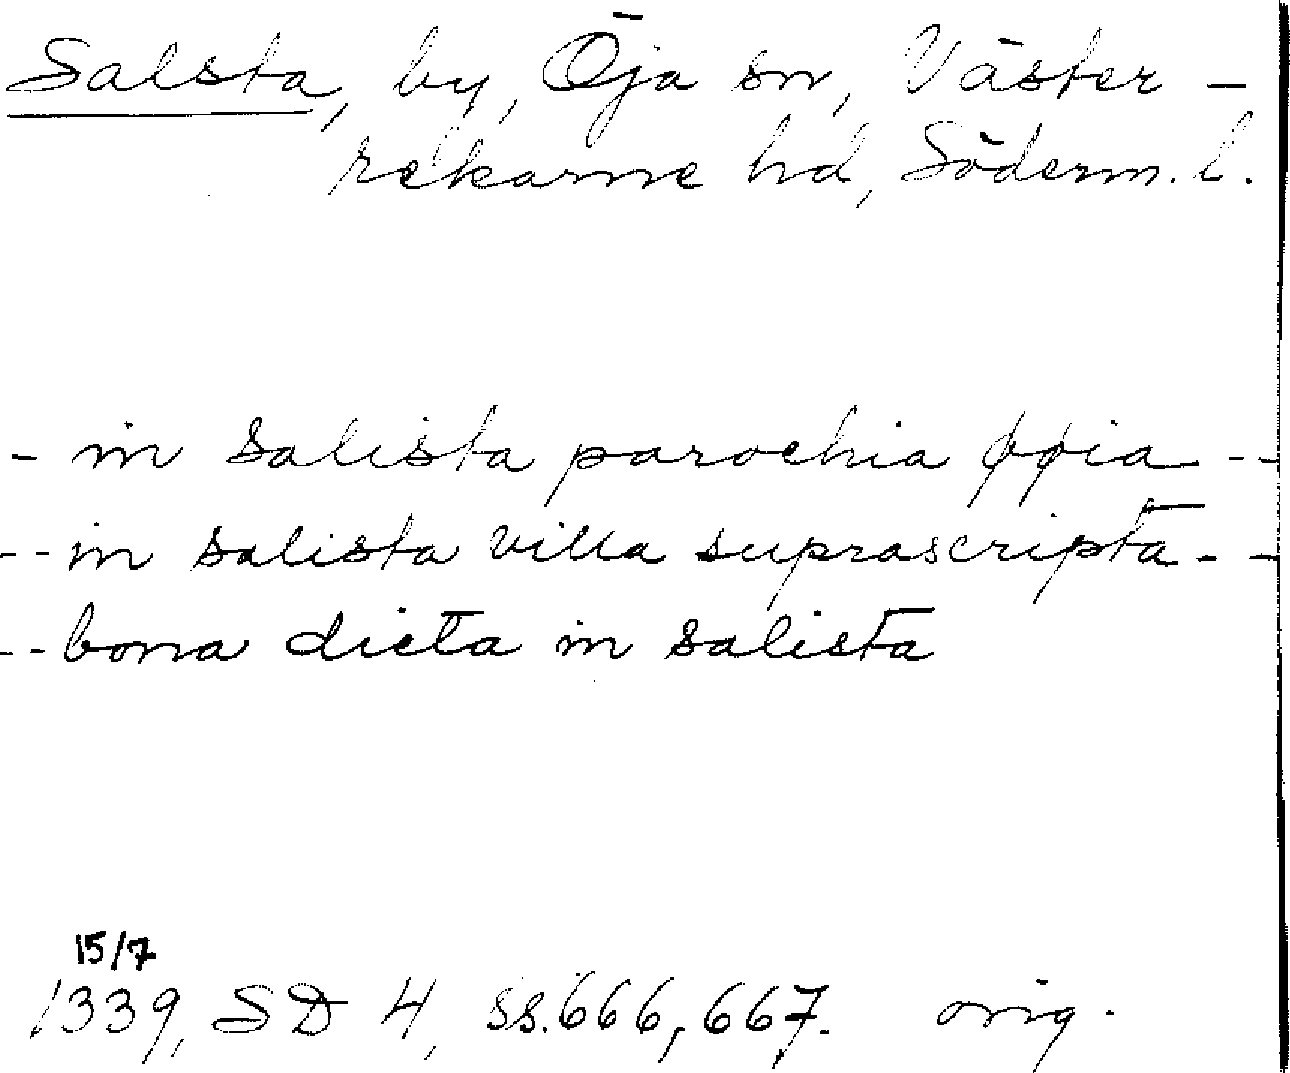 Salsta, by, Öja sn, Väster-
rekarne hd, Söderm. l.
- in salista parochia øøia --
-- in salista villa suprascripta --
-- bona dicta in salista
15/7
1339, SD 4, ss. 666, 667. orig.